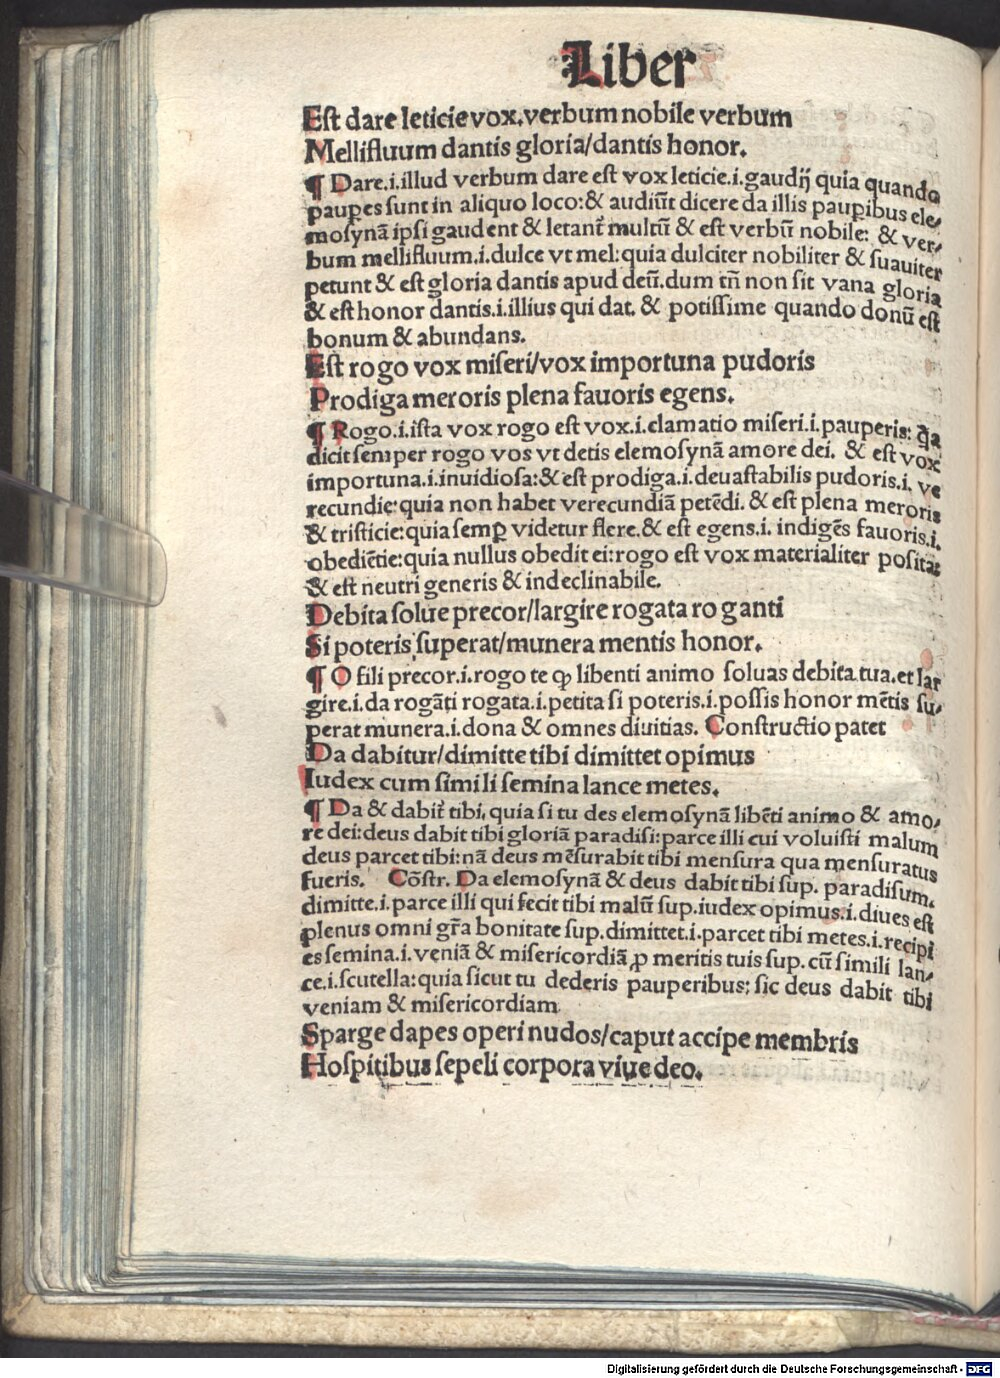 Liber
Est dare leticie vox.verbum nobile verbum
Mellifluum dantis gloria/dantis honor.
¶ Dare.i.illud verbum dare est vox leticie.i.gaudij quia quando
paup̲es sunt in aliquo loco:& audiūt dicere da illis paup̲ibus ele⸗
mosynā ipsi gaudent & letant᷑ multū & est verbū nobile: & ver⸗
bum mellifluum.i.dulce vt mel:quia dulciter nobiliter & suauiter
petunt & est gloria dantis apud deū.dum tn̄ non sit vana gloria
& est honor dantis.i.illius qui dat. & potissime quando donū est
bonum & abundans.
Est rogo vox miseri/vox importuna pudoris
Prodiga meroris plena fauoris egens.
¶ Rogo.i.ista vox rogo est vox.i.clamatio miseri.i.pauperis: q̄a
dicit semper rogo vos vt detis elemosynā amore dei. & est vox
importuna.i.inuidiosa:& est prodiga.i.deuastabilis pudoris.i. ve
recundie:quia non habet verecundiā petēdi. & est plena meroris
& tristicie:quia semp̲ videtur flere.& est egens.i. indigēs fauoris.i.
obediētie:quia nullus obedit ei:rogo est vox materialiter posita:
& est neutri generis & indeclinabile.
Debita solue precor/largire rogata roganti
Si poteris superat/munera mentis honor.
¶ O fili precor.i.rogo te ꝙ libenti animo soluas debita tua.et lar
gire.i.da rogāti rogata.i.petita si poteris.i.possis honor mētis su⸗
perat munera.i.dona & omnes diuitias. Constructio patet
Da dabitur/dimitte tibi dimittet opimus
Iudex cum simili semina lance metes.
¶ Da & dabit᷑ tibi, quia si tu des elemosynā libēti animo & amo⸗
re dei:deus dabit tibi gloriā paradisi:parce illi cui voluisti malum
deus parcet tibi:nā deus mēsurabit tibi mensura qua mensuratus
fueris. Cōstr. Da elemosynā & deus dabit tibi sup. paradisum.
dimitte.i.parce illi qui fecit tibi malū sup.iudex opimus.i.diues est
plenus omni gr̄a bonitate sup.dimittet.i.parcet tibi metes.i.recipi
es semina.i.veniā & misericordiā ꝓ meritis tuis sup. cū simili lan⸗
ce.i.scutella:quia sicut tu dederis pauperibus; sic deus dabit tibi
veniam & misericordiam
Sparge dapes operi nudos/caput accipe membris
Hospitibus sepeli corpora viue deo.
Digitalisierung gefördert durch die Deutsche Forschungsgemeinschaft - DFG